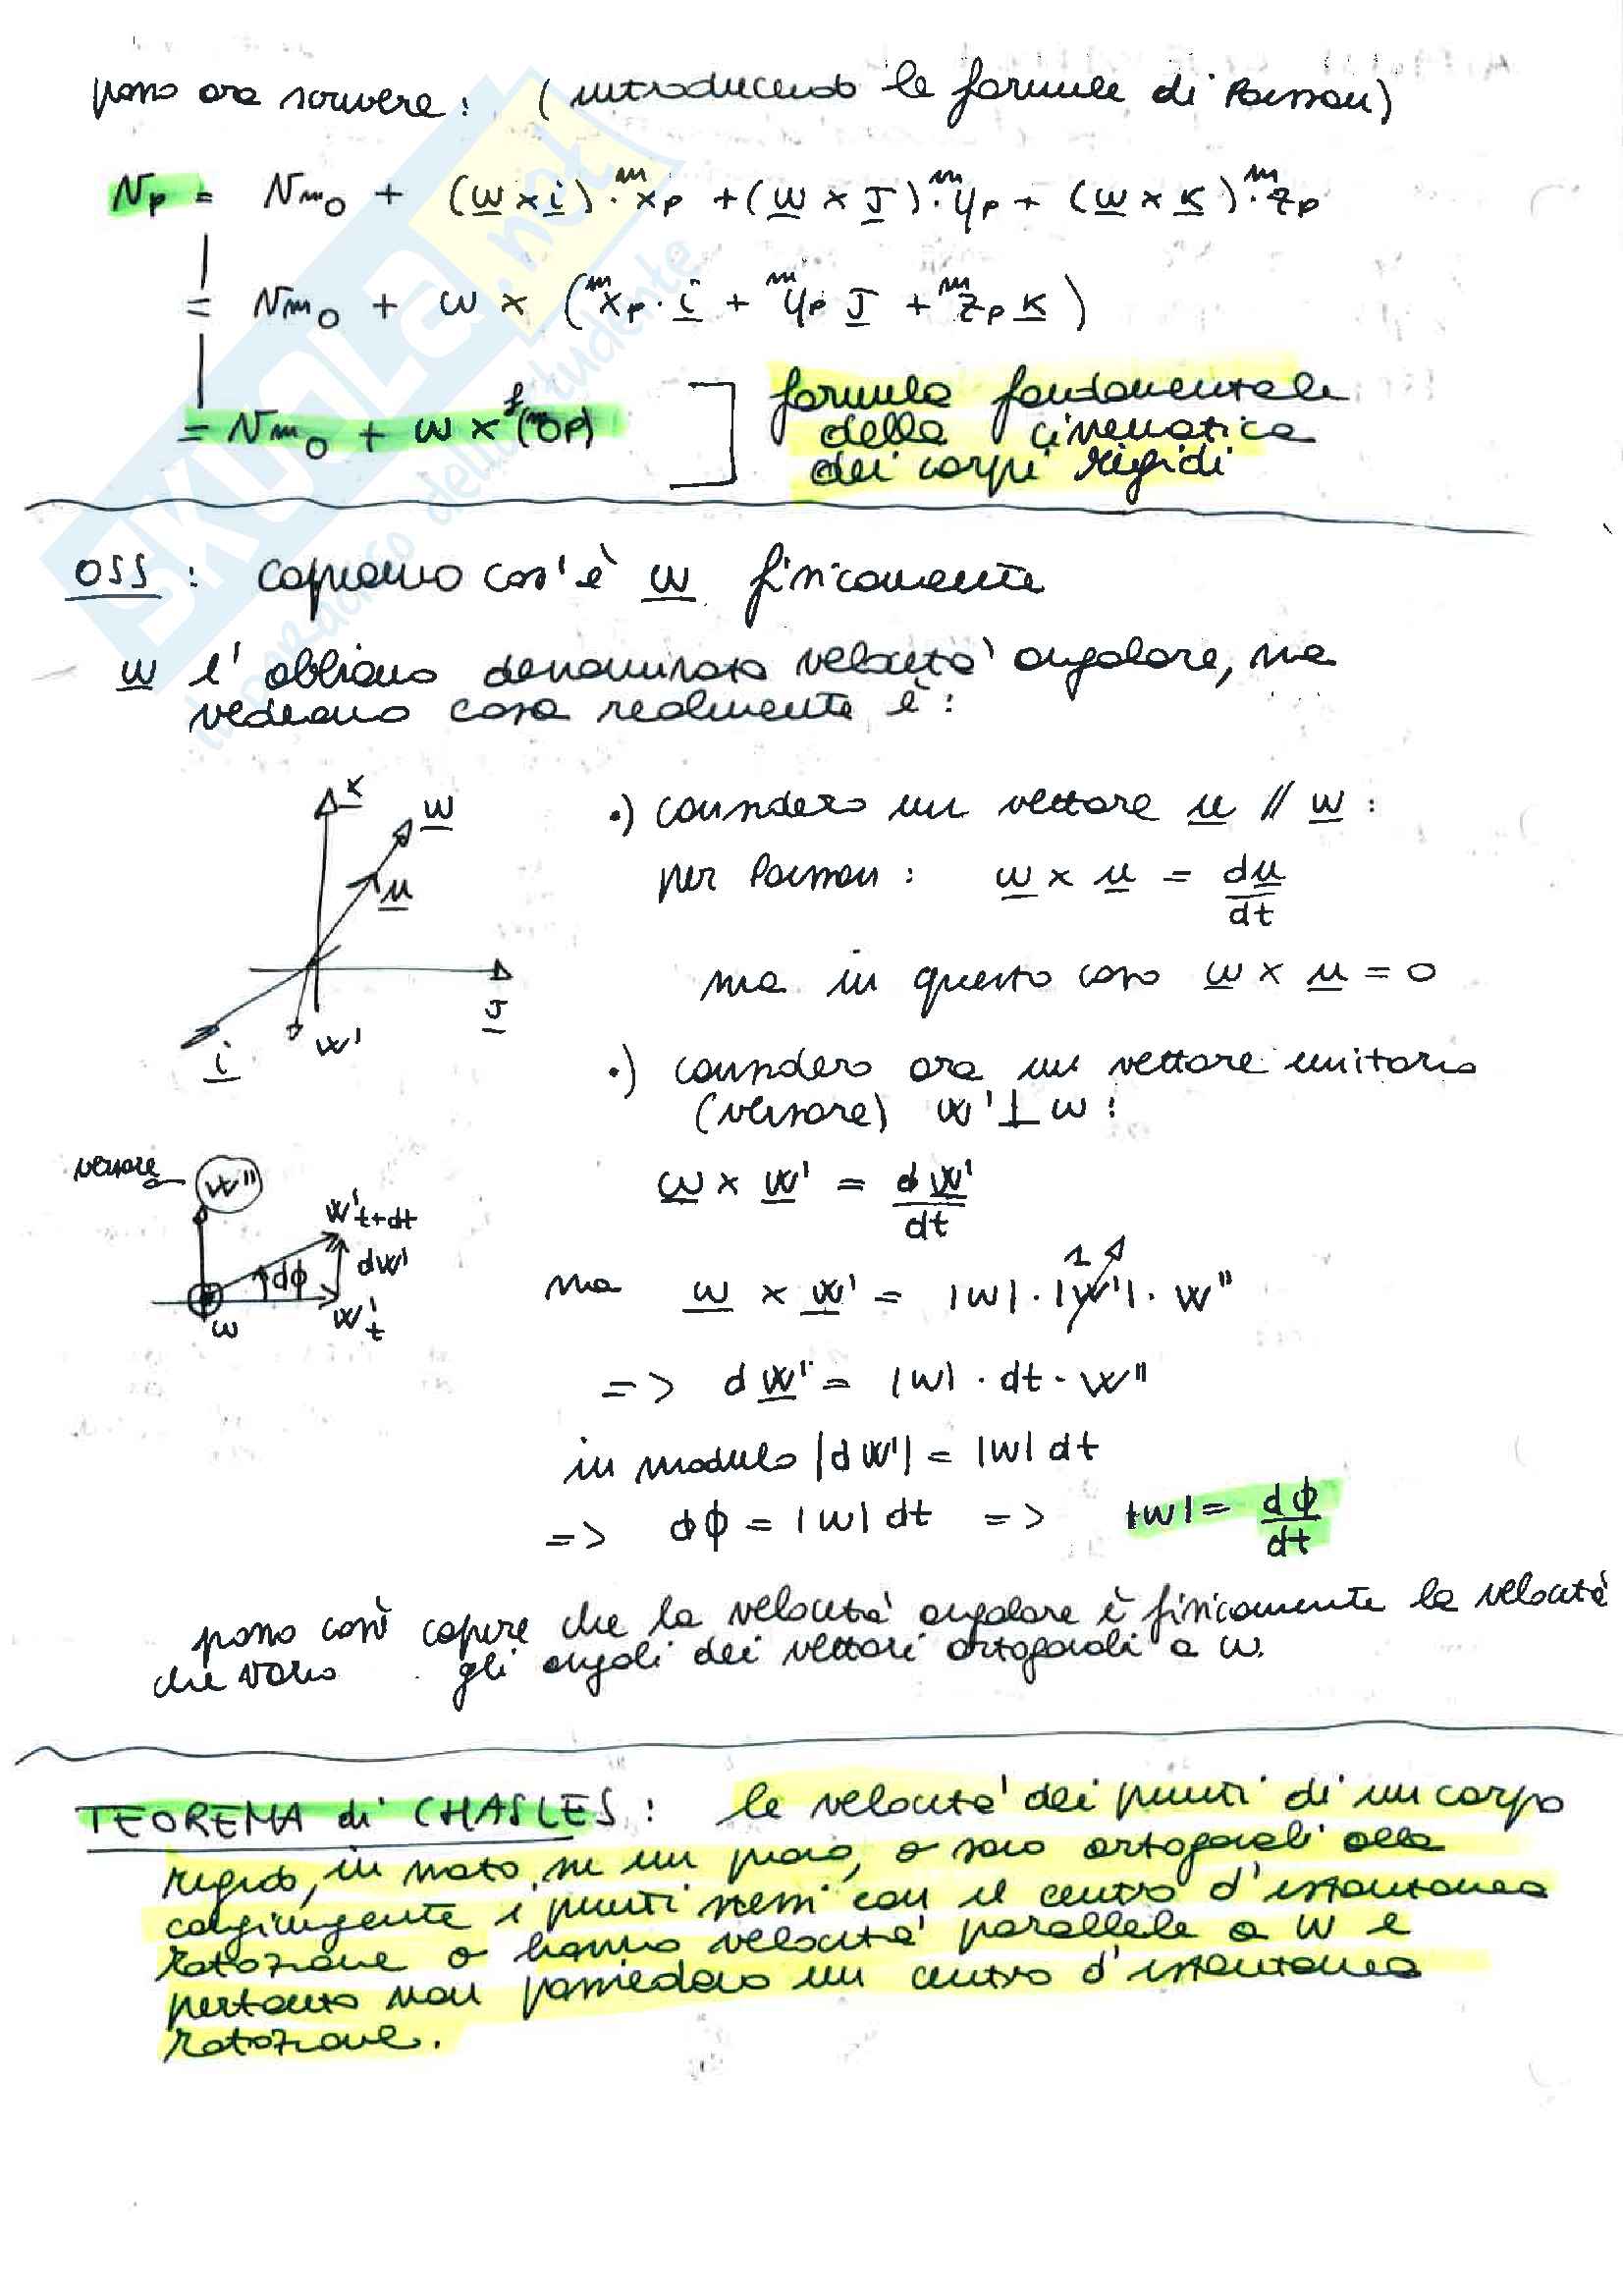 posso ora scrivere: (introducendo le formule di Poisson)
Vp = Vm₀ + (ω × i)·ᵐxp + (ω × J)·ᵐyp + (ω × K)·ᵐzp
= Vm₀ + ω × (ᵐxp·i + ᵐyp J + ᵐzp K)
= Vm₀ + ω × ᶠ(ᵐOP)
formula fondamentale
della cinematica
dei corpi rigidi
OSS: capiamo cos'è ω fisicamente
ω l'abbiamo denominata velocità angolare, ma
vediamo cosa realmente è:
K
ω
u
J
i
w'
•) considero un vettore u // ω:
per Poisson: ω × u = du/dt
ma in questo caso ω × u = 0
•) considero ora un vettore unitario
(versore) w' ⊥ ω:
ω × w' = dw'/dt
versore
w''
w't+dt
dw'
dϕ
w't
ω
ma ω × w' = |ω|·|w'|·w''
1
=> dw' = |ω|·dt·w''
in modulo |dw'| = |ω| dt
=> dϕ = |ω| dt => |ω| = dϕ/dt
posso così capire che la velocità angolare è fisicamente la velocità
che varia gli angoli dei vettori ortogonali a ω.
TEOREMA di CHASLES: le velocità dei punti di un corpo
rigido, in moto su un piano, o sono ortogonali alla
congiungente i punti stessi con il centro d'istantanea
rotazione o hanno velocità parallele a ω e
pertanto non possiedono un centro d'istantanea
rotazione.
SKUOLA.net